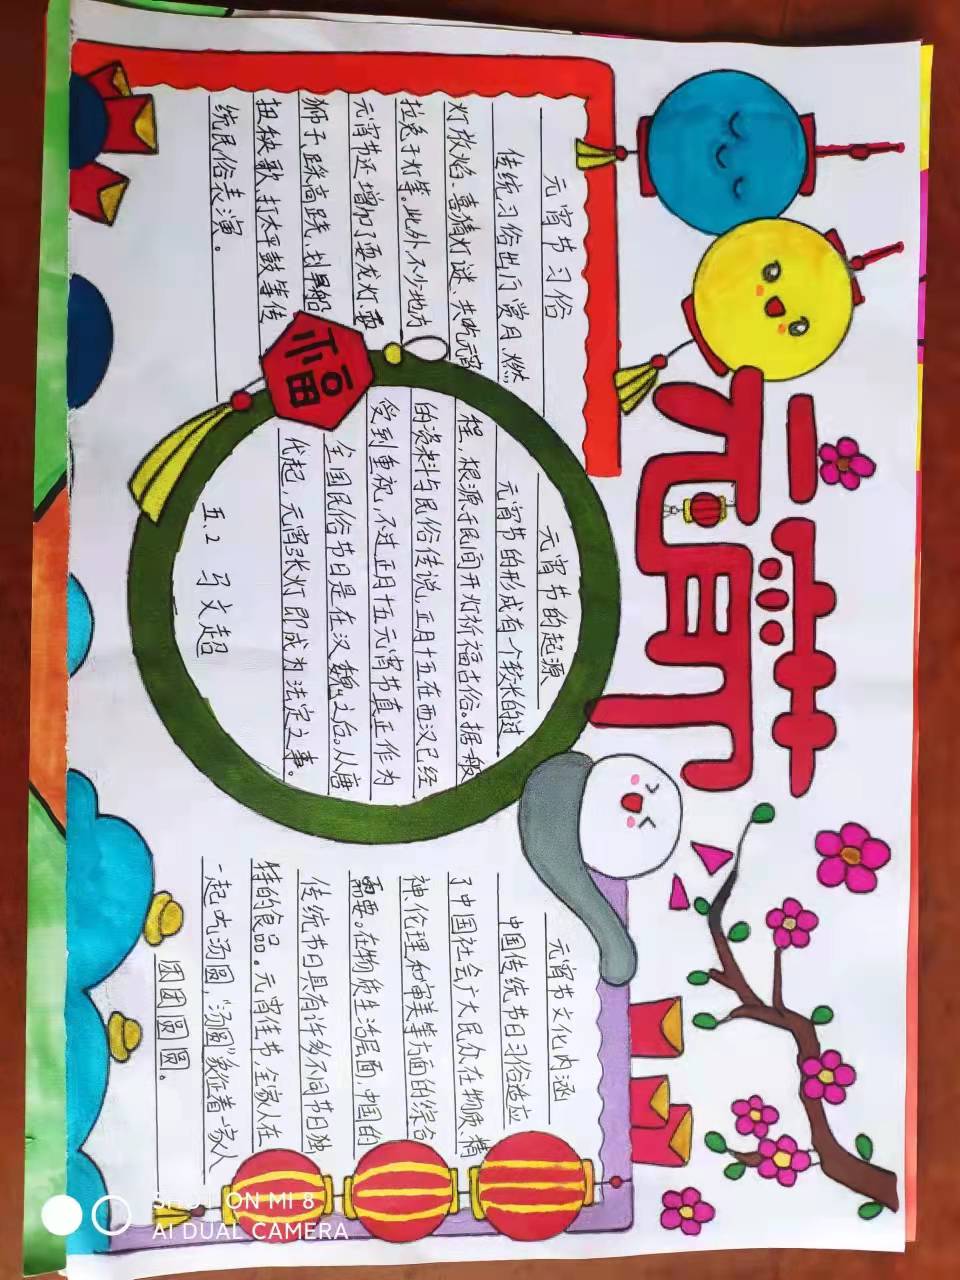 元宵
元宵节习俗
传统习俗出门赏月、燃
灯放焰、喜猜灯谜、共吃元宵
拉兔子灯等。此外,不少地方
元宵节还增加了耍龙灯、耍
狮子、踩高跷、划旱船
扭秧歌、打太平鼓等传
统民俗表演。
福
元宵节的起源
元宵节的形成有一个较长的过
程,根源于民间开灯祈福古俗。据一般
的资料与民俗传说,正月十五在西汉已经
受到重视,不过正月十五元宵节真正作为
全国民俗节日是在汉魏之后。从唐
代起,元宵张灯即成为法定之事。
五.2 马文超
元宵节文化内涵
中国传统节日习俗适应
了中国社会广大民众在物质、精
神、伦理和审美等方面的综合
需要。在物质生活层面,中国的
传统节日具有许多不同节日独
特的食品。元宵佳节,全家人在
一起吃汤圆,“汤圆”象征着一家人
团团圆圆。
SHOT ON MI 8
AI DUAL CAMERA